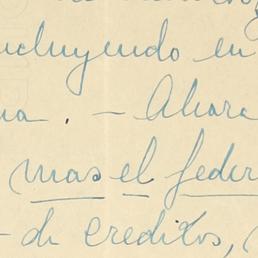 cluyendo en
na. — Ahora
mas el feder
– de creditos,